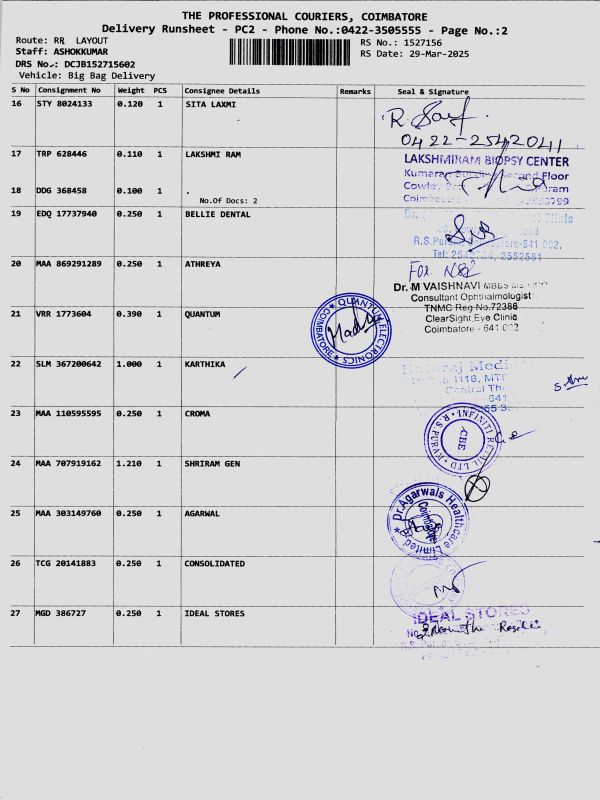 THE PROFESSIONAL COURIERS, COIMBATORE
Delivery Runsheet - PC2 - Phone No.:0422-3505555 - Page No.:2
Route: RR LAYOUT
RS No.: 1527156
Staff: ASHOKKUMAR
RS Date: 29-Mar-2025
DRS No.: DCJB152715602
Vehicle: Big Bag Delivery
S No Consignment No Weight PCS Consignee Details Remarks Seal & Signature
16 STY 8024133 0.120 1 SITA LAXMI
0422-2542041
17 TRP 628446 0.110 1 LAKSHMI RAM
LAKSHMIRAM BIOPSY CENTER
Kumaran Second Floor
18 DDG 368458 0.100 1 .
No.Of Docs: 2
19 EDQ 17737940 0.250 1 BELLIE DENTAL
Clinic
Road
R.S.Puram -641 002.
20 MAA 869291289 0.250 1 ATHREYA
For
Dr. M VAISHNAVI MBBS
Consultant Ophthalmologist
TNMC Reg No.72386
ClearSight Eye Clinic
Coimbatore - 641 002
21 VRR 1773604 0.390 1 QUANTUM
QUANTUM ELECTRONICS
COIMBATORE
22 SLM 367200642 1.000 1 KARTHIKA
Medi
1116, MTP
Central
641
23 MAA 110595595 0.250 1 CROMA
INFINITI RETAIL LTD
R.S.PURAM
CBE
24 MAA 707919162 1.210 1 SHRIRAM GEN
25 MAA 303149760 0.250 1 AGARWAL
Dr.Agarwals Healthcare Limited
Coimbatore
26 TCG 20141883 0.250 1 CONSOLIDATED
27 MGD 386727 0.250 1 IDEAL STORES
IDEAL STORES